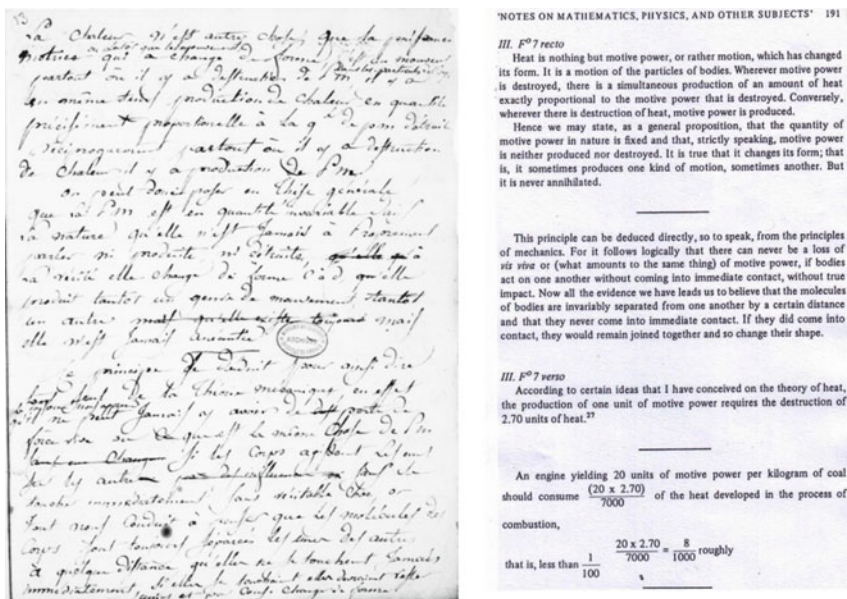 La Chaleur n'est autre chose que la puissance
motrice qui a changé de forme
partout où il y a destruction de P m il y a
en même tems production de Chaleur en quantité
précisément proportionelle à la q de p m détruit
réciproquement partout où il y a destruction
de Chaleur il y a production de P m
on peut donc poser en thèse générale
que la P m est en quantité invariable dans
la nature qu'elle n'est jamais à proprement
parler ni produite ni détruite, à
la vérité elle change de forme c à d qu'elle
produit tantôt un genre de mouvement, tantôt
un autre mais qu'elle existe toujours mais
elle n'est jamais anéantie
Ce principe se déduit pour ainsi dire
de la théorie mécanique, en effet
il ne peut jamais y avoir de perte de
force vive ou ce qui est la même chose de P m
si les corps agissent les uns
sur les autres sans se
toucher immédiatement, sans véritable choc or
tout nous conduit à penser que les molécules des
corps sont toujours séparées les unes des autres
à quelque distance qu'elles ne se touchent jamais
immédiatement. si elles se touchaient elles devraient rester
unies et par cons. changer de forme
'NOTES ON MATHEMATICS, PHYSICS, AND OTHER SUBJECTS' 191
III. Fº 7 recto
Heat is nothing but motive power, or rather motion, which has changed
its form. It is a motion of the particles of bodies. Wherever motive power
is destroyed, there is a simultaneous production of an amount of heat
exactly proportional to the motive power that is destroyed. Conversely,
wherever there is destruction of heat, motive power is produced.
Hence we may state, as a general proposition, that the quantity of
motive power in nature is fixed and that, strictly speaking, motive power
is neither produced nor destroyed. It is true that it changes its form; that
is, it sometimes produces one kind of motion, sometimes another. But
it is never annihilated.
This principle can be deduced directly, so to speak, from the principles
of mechanics. For it follows logically that there can never be a loss of
vis viva or (what amounts to the same thing) of motive power, if bodies
act on one another without coming into immediate contact, without true
impact. Now all the evidence we have leads us to believe that the molecules
of bodies are invariably separated from one another by a certain distance
and that they never come into immediate contact. If they did come into
contact, they would remain joined together and so change their shape.
III. Fº 7 verso
According to certain ideas that I have conceived on the theory of heat,
the production of one unit of motive power requires the destruction of
2.70 units of heat.²⁷
An engine yielding 20 units of motive power per kilogram of coal
should consume (20 x 2.70)/7000 of the heat developed in the process of
combustion,
20 x 2.70/7000 = 8/1000 roughly
that is, less than 1/100